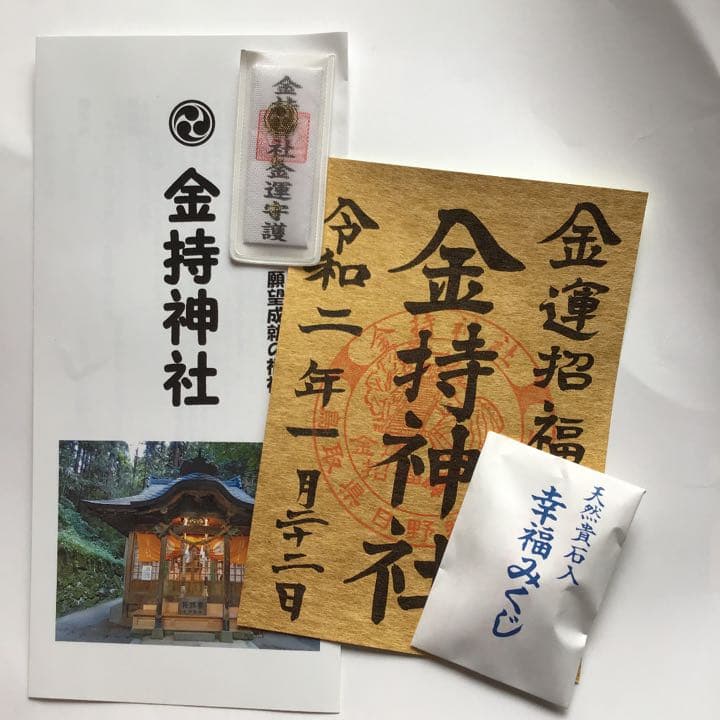 金持神社
願望成就の
金持
社金運守護
金運招福
金持神社
令和二年一月二十二日
金持神社
鳥取県日野
天然貴石入
幸福みくじ